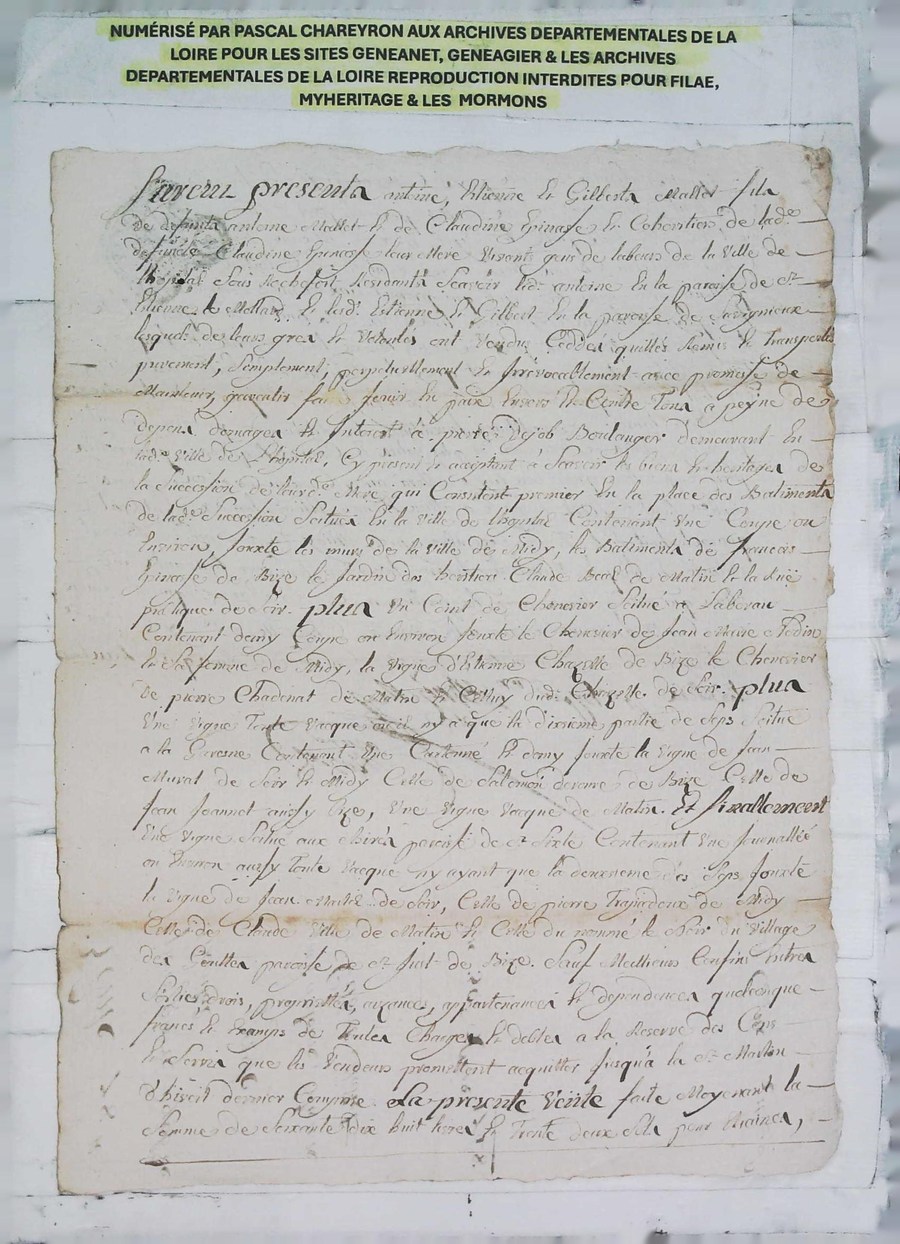 NUMÉRISÉ PAR PASCAL CHAREYRON AUX ARCHIVES DEPARTEMENTALES DE LA
LOIRE POUR LES SITES GENEANET, GENEAGIER & LES ARCHIVES
DEPARTEMENTALES DE LA LOIRE REPRODUCTION INTERDITES POUR FILAE,
MYHERITAGE & LES MORMONS
furent presents antoine, Estienne et Gilberts Mallet fils
de defunts antoine Mallet et de Claudine Epinasse et Coheritiers de lad.e
defuncte Claudine Epinasse leur Mere Vivants gens de labeurs de la Ville de
l'hopital Sous Rochefort Residants Scavoir led. antoine En la paroisse de St
Estienne le Mollard Et lesd. Estienne et Gilbert En la paroisse de Savignieux
lesquels de leurs gres et Volontés ont Vendus Ceddes quittés Remis et Transportés
purement, Simplement, perpetuellement et Irrévocablement avec promesse de
Maintenir, garentir faire Jouir En paix Envers et Contre Tous a peyne de
depens domages et Interest à pierre Dejob Boulanger demeurant En
lad.e Ville de l'hopital, Cy present et acceptant à Scavoir les biens et heritages de
la Succession de leurd.e Mere qui Consistent premier En la place des Batiments
de lad.e Succession Scitués En la Ville de l'hopital Contenant Une Coupe ou
Environ, Jouxte les murs de la Ville de Midy, les Batiments de francois
Epinasse de Bize le Jardin des heritiers Claude Beal de Matin et la Rue
publique de Soir. plus Un Coint de Chenevier Scitué a
Contenant demy Coupe ou Environ Jouxte le Chenevier de Jean Marie
et Sa femme de Midy, la Vigne d'Estienne Chazelle de Bize le Chenevier
de pierre Chadenat de Matin et Celluy dud. Chazelle de Soir. plus
Une Vigne Toute Vacque ou il ny a que la dixieme partie de Seps Scitué
a la Garenne Contenant Une Cartonné et demy Jouxte la Vigne de Jean
Murat de Soir et Midy Celle de Salomon de Bize Celle de
Jean Joannot aussy Bize, Une Vigne Vacque de Matin. Et finallement
Une Vigne Scitué aux paroisse de St Sixte Contenant Une Journallée
ou Environ aussy Toute Vacque ny ayant que la douzieme des Seps Jouxte
la Vigne de Jean de Soir, Celle de pierre de Midy
Celle de Claude de Matin et Celle du nommé le Noir du Village
des Gouttes paroisse de St Just de Bize. Sauf Meilleurs Confins Entrées
Sorties droits, proprietés, aizances, appartenances et dependences quelconque
francs et Exempts de Toutes Charges et debtes a la Reserve des Cens
et Servis que les Vendeurs promettent acquitter Jusqua la St Martin
d'hivert dernier Compris. La presente Vente faite Moyenant la
Somme de Soixante dix huit livres et Trente deux Sols pour étraines,